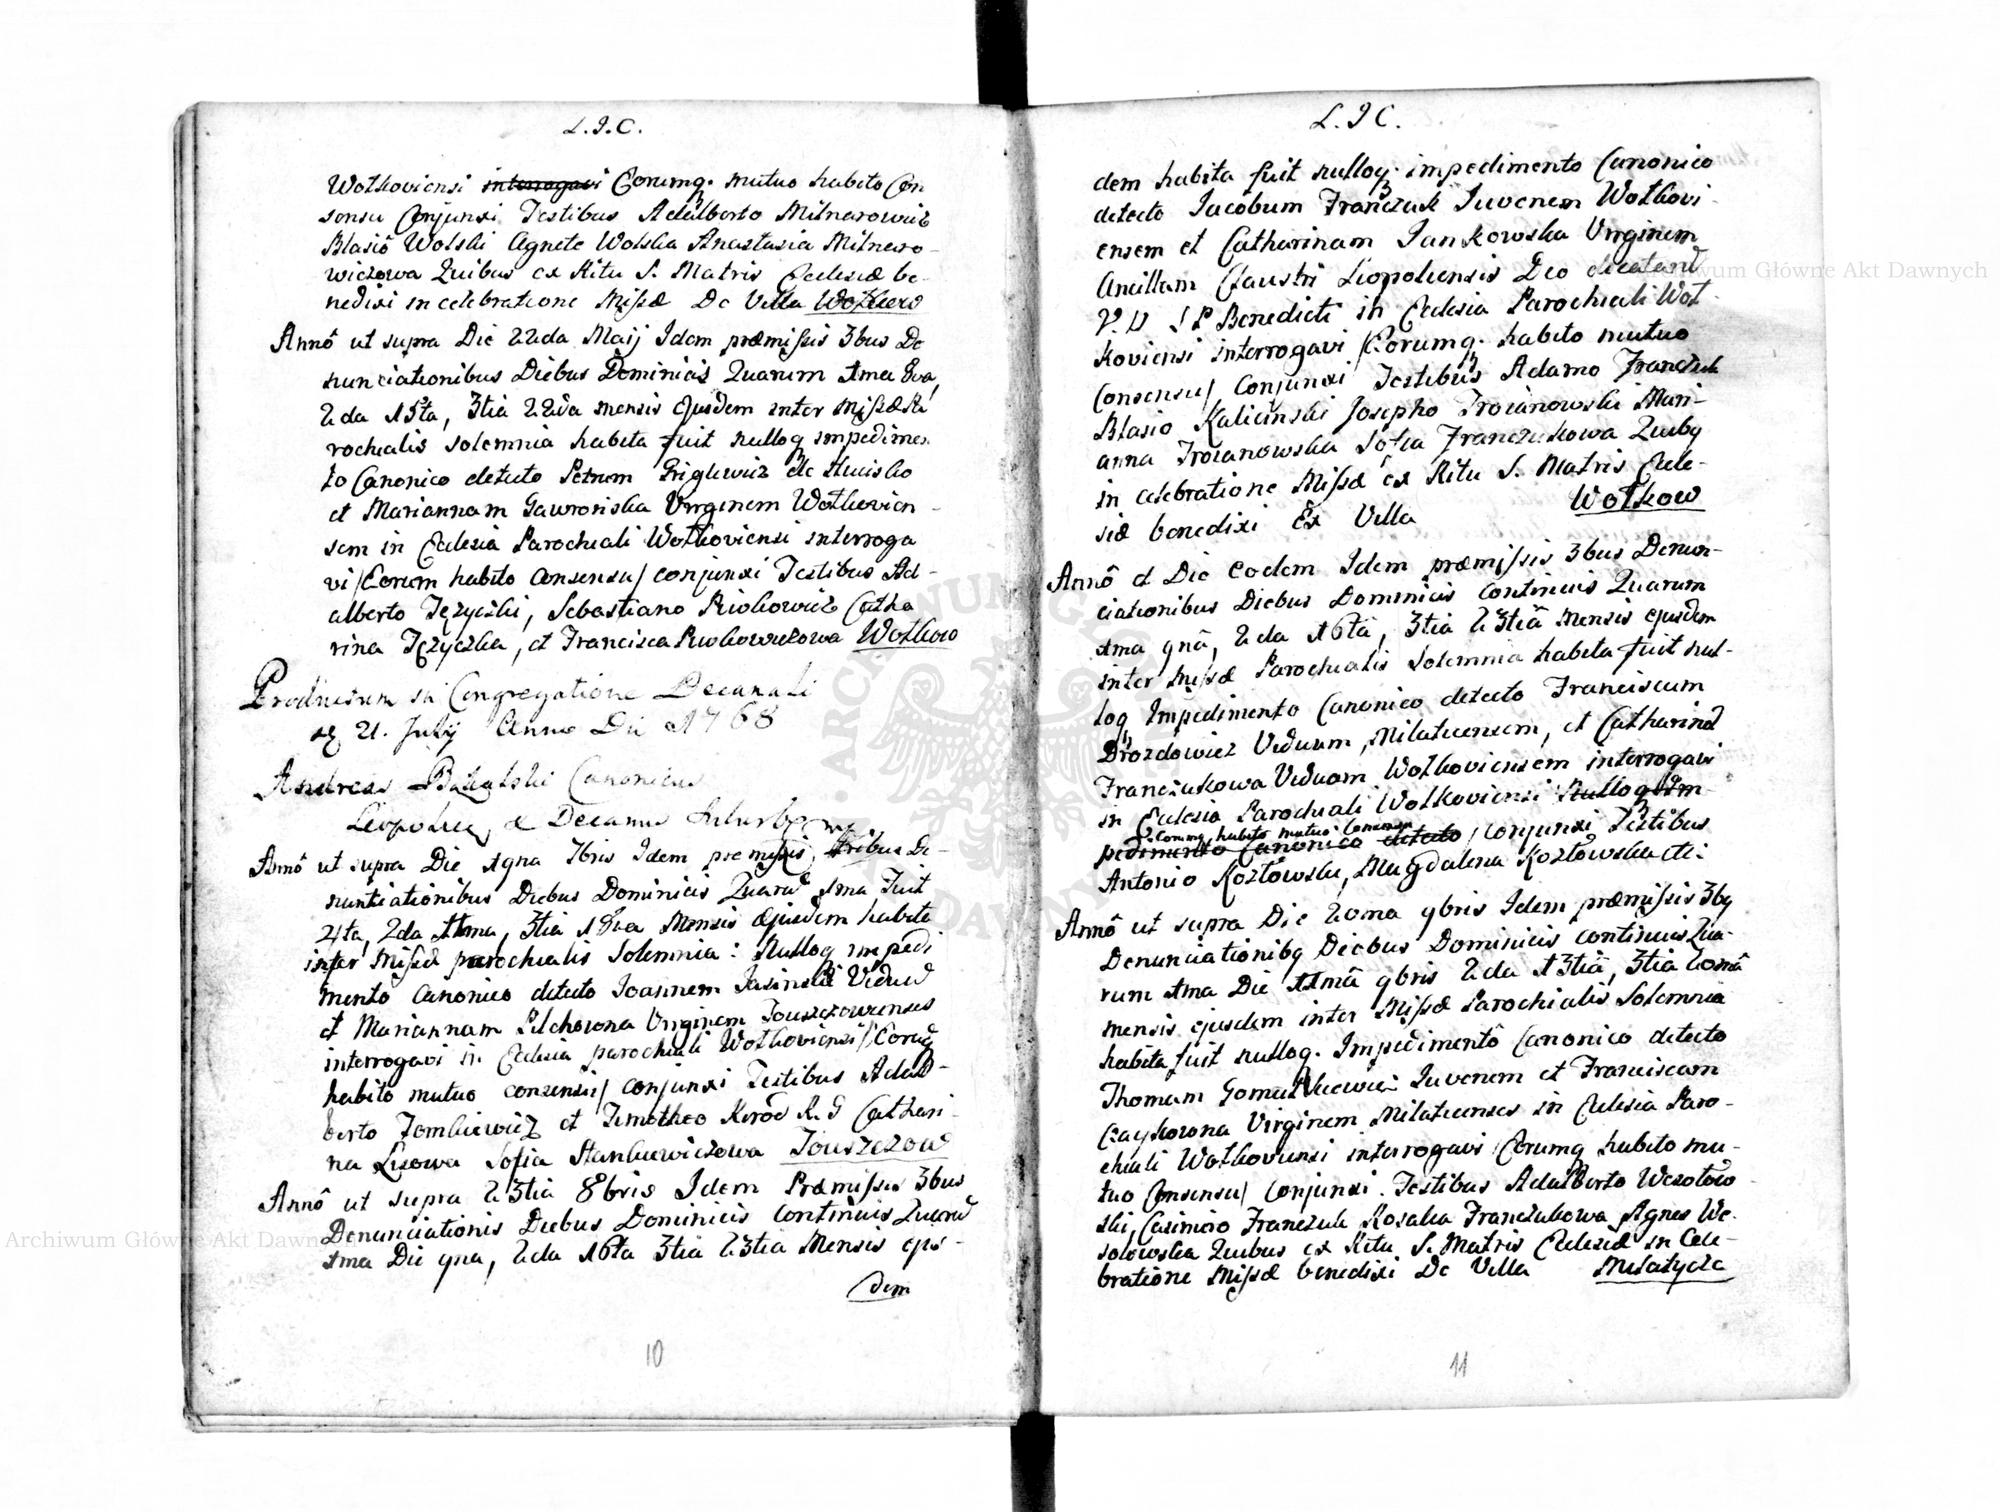 L.J.C.
Wołkoviensi interrogavi Eorumq. mutuo habito Con
sensu Conjunxi Testibus Adalberto Milnarowicz
Blasio Wolski Agnete Wolska Anastasia Milnaro-
wiczowa Quibus ex Ritu S. Matris Ecclesiæ be-
nedixi in celebratione Missæ De Villa Wołkow
Annô ut supra Die 22da Maij Idem præmissis 3bus De
nunciationibus Diebus Dominicis Quarum 1ma 8va,
2da 15ta, 3tia 22da mensis Ejusdem inter Missæ Pa
rochialis solemnia habita fuit nulloq impedimen
to Canonico detecto Petrum Griglewicz de
et Mariannam Gawrońska Virginem Wołkovien-
sem in Ecclesia Parochiali Wołkoviensi interroga
vi/Eorum habito Consensu/ conjunxi Testibus Ad-
alberto Tęzycki, Sebastiano Catha
rina Tęzyczka, et Francisca Wołkow
Productum in Congregatione Decanali
21. Julij Anno Dni 1768
Andreas Canonicus
Decanus
Annô ut supra Die 1gna 7bris Idem præmissis tribus De-
nuntiationibus Diebus Dominicis Quarũ 1ma Fuit
4ta, 2da 11ma, 3tia 18va Mensis Ejusdem habita
inter Missæ parochialis Solemnia: Nulloq impedi
mento Canonico detecto Joannem Jasinski Viduũ
et Mariannam Pilchowna Virginem Touszczowienses
interrogavi in Ecclesia parochiali Wołkoviensi/Eorũq
habito mutuo consensu/ conjunxi Testibus Adal-
berto Tomkiewicz et Timotheo R. G Cathari-
na Lisowa Sofia Stankiewiczowa Touszczow
Annô ut supra 23tia 8bris Idem Præmissis 3bus
Denunciationis Diebus Dominicis continuis Quarũ
1ma Die 9na, 2da 16ta 3tia 23tia Mensis ejus-
dem
10
L.J C.
dem habita fuit nulloq. impedimento Canonico
detecto Jacobum Franczuk Juvenem Wołkovi-
ensem et Catharinam Jankowska Virginem
Ancillam Claustri Leopoliensis Deo dicatarũ
V.V S P Benedicti in Ecclesia Parochiali Woł-
koviensi interrogavi /Eorumq. habito mutuo
Consensu/ Conjunxi Testibus Adamo Franczuk
Blasio Kalicinski Josepho Troianowski Mari-
anna Troianowska Sofia Franczukowa Quibq
in celebratione Missæ ex Ritu S. Matris Eccle-
siæ benedixi Ex Villa Wołkow
Annô et Die Eodem Idem præmissis 3bus Denun-
ciationibus Diebus Dominicis Continuis Quarum
1ma 9nâ, 2da 16tâ, 3tia 23tiâ mensis ejusdem
inter Missæ Parochialis Solemnia habita fuit nul-
loq Impedimento Canonico detecto Franciscum
Drozdowicz Viduum, Milaticensem, et Catharinã
Franczukowa Viduam Wołkoviensem interrogavi
in Ecclesia Parochiali Wołkoviensi Nulloq Im-
Eorumq habito mutuo Consensu
pedimento Canonico detecto /conjunxi Testibus
Antonio Kozłowski, Magdalena Kozłowska etc:
Annô ut supra Die 20ma 9bris Idem præmissis 3bq
Denunciationibq Diebus Dominicis continuis Qua-
rum 1ma Die 11mâ 9bris 2da 13tiâ, 3tia 20mâ
mensis ejusdem inter Missæ Parochialis Solemnia
habita fuit nulloq. Impedimentô Canonico detecto
Thomam Juvenem et Franciscam
Czaykowna Virginem Milaticenses in Ecclesia Paro-
chiali Wołkoviensi interrogavi /Eorumq habito mu-
tuo Consensu/ conjunxi. Testibus Adalberto Wesołow-
ski, Casimiro Franczuk Rosalia Franczukowa Agnes We-
sołowska Quibus ex Ritu S. Matris Ecclesiæ in Cele-
bratione Missæ benedixi De Villa Milatycze
11
Archiwum Główne Akt Dawnych
Archiwum Główne Akt Dawnych
ARCHIWUM GŁÓWNE AKT DAWNYCH